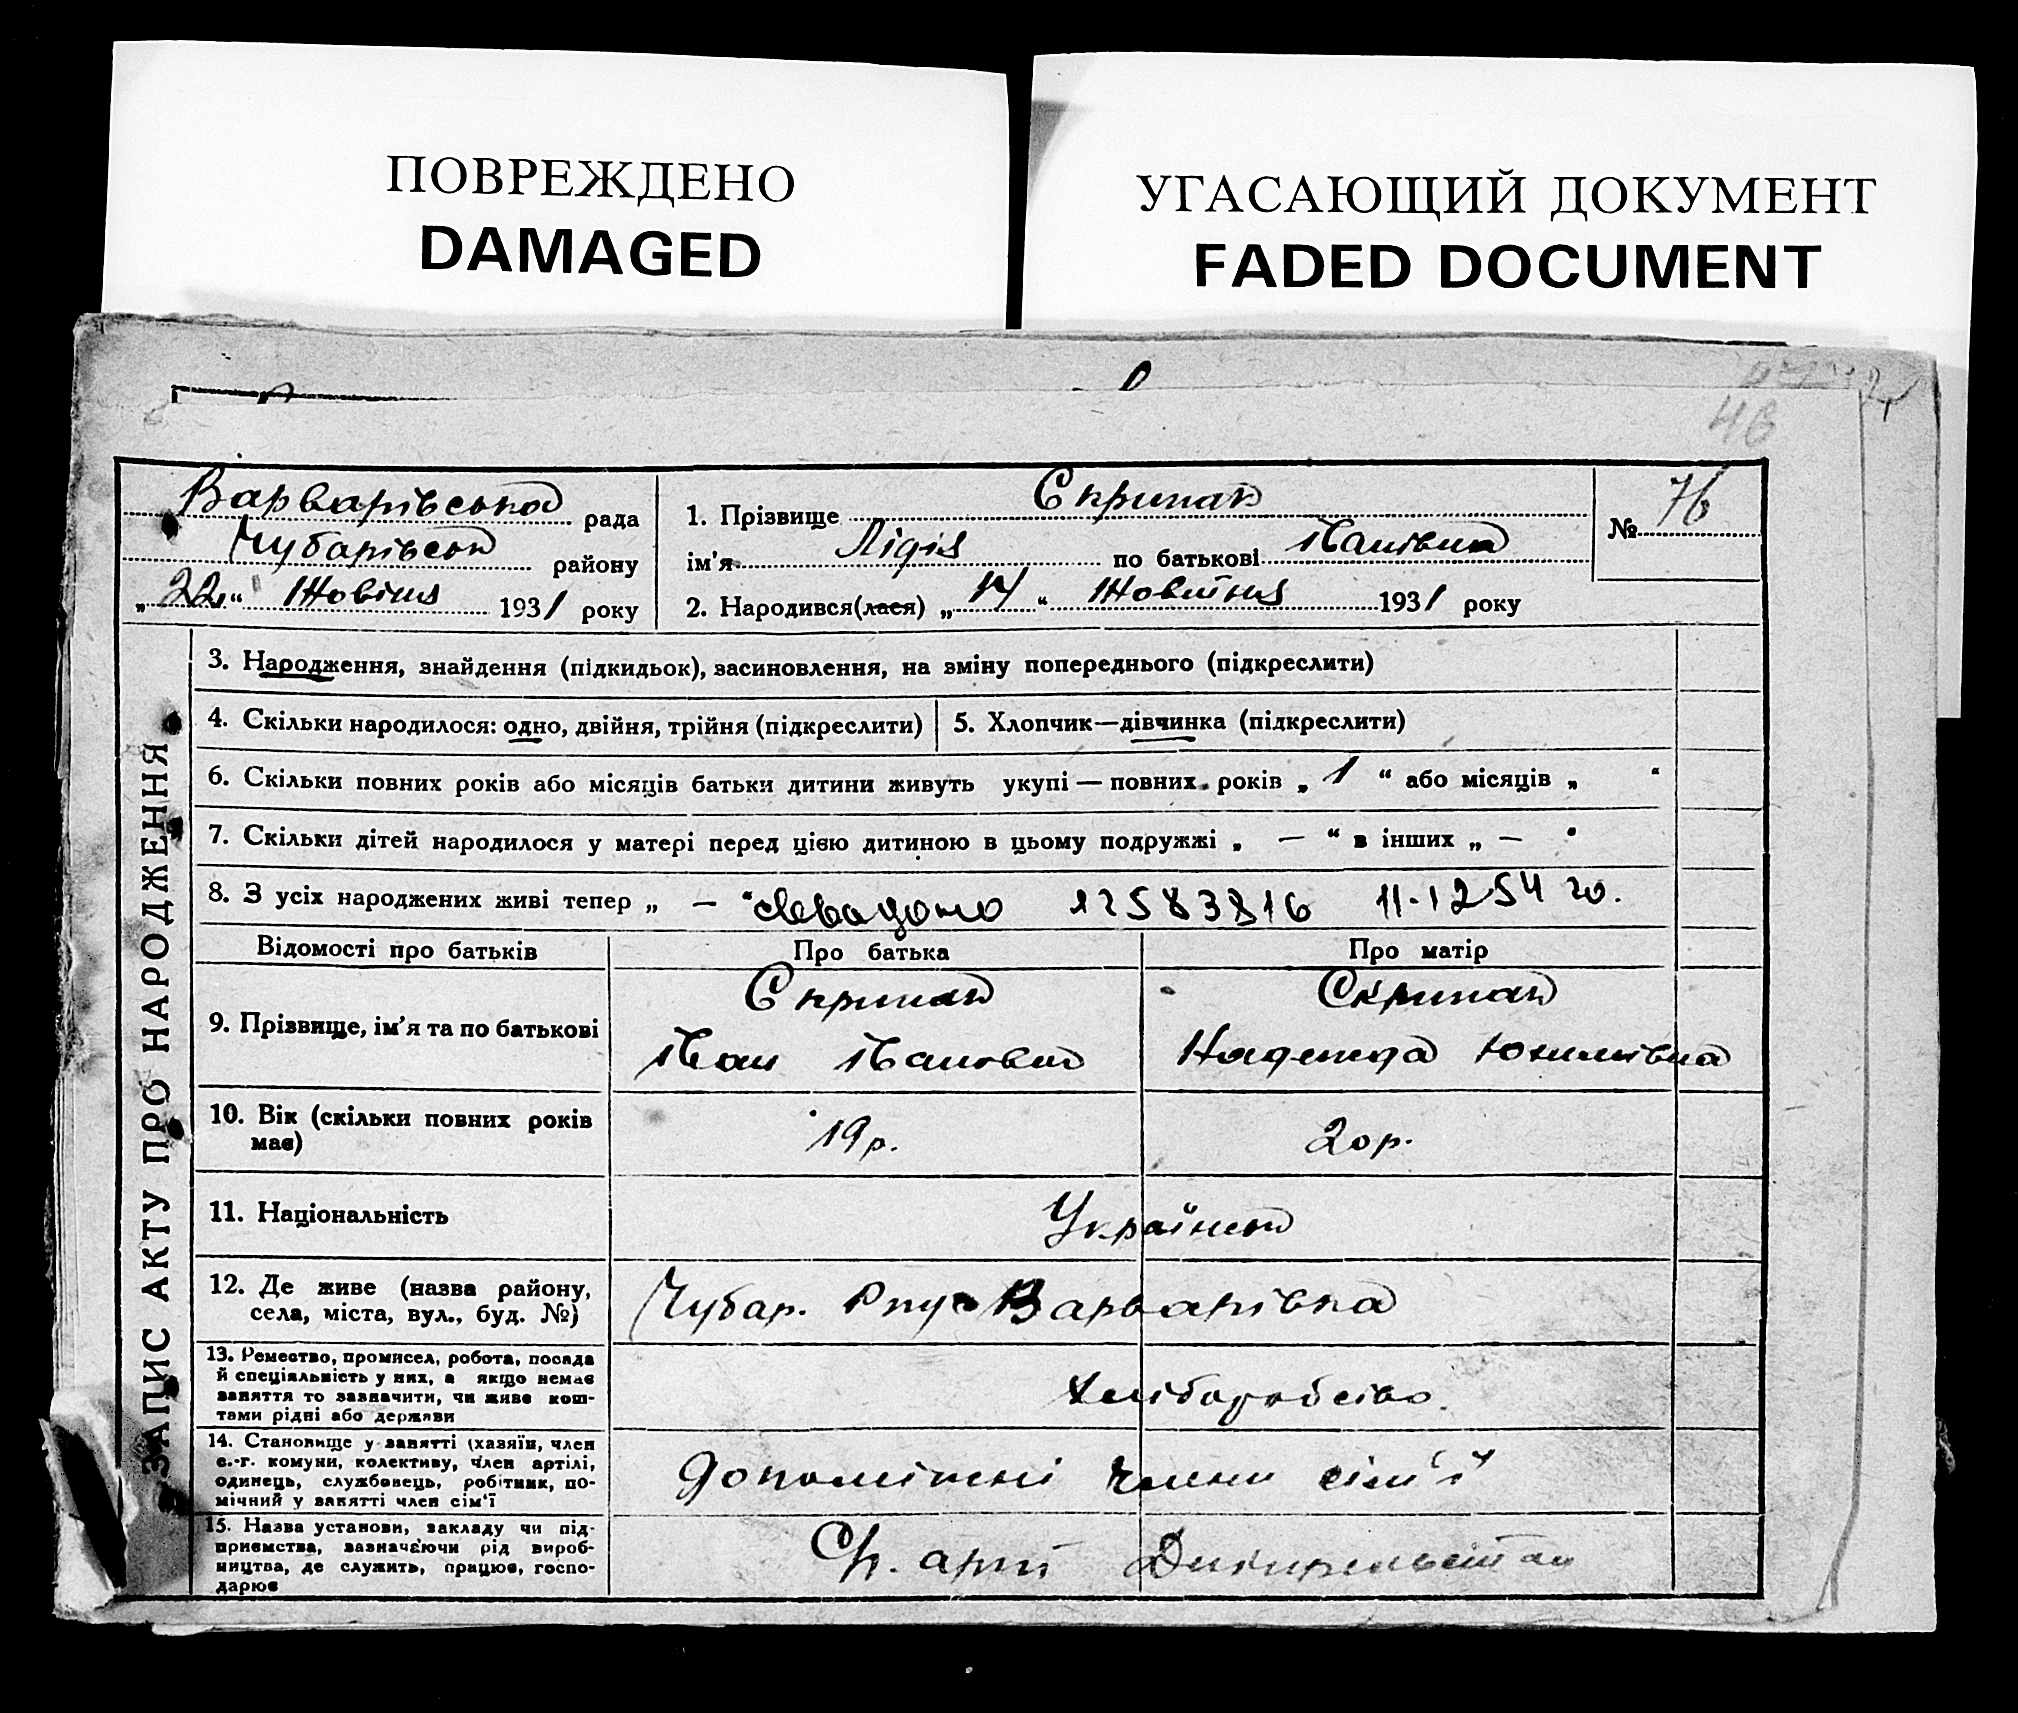 ПОВРЕЖДЕНО
DAMAGED
УГАСАЮЩИЙ ДОКУМЕНТ
FADED DOCUMENT
46
Варварівської рада
Чубарівськ району
„22“ Жовтня 1931 року
1. Прізвище Скрипак
ім'я Лідія по батькові Іванівна
2. Народився(лася) „14“ Жовтня 1931 року
№ 76
ЗАПИС АКТУ ПРО НАРОДЖЕННЯ
3. Народження, знайдення (підкидьок), засиновлення, на зміну попереднього (підкреслити)
4. Скільки народилося: одно, двійня, трійня (підкреслити)
5. Хлопчик—дівчинка (підкреслити)
6. Скільки повних років або місяців батьки дитини живуть укупі — повних років „ 1 “ або місяців „ “
7. Скільки дітей народилося у матері перед цією дитиною в цьому подружжі „ — “ в інших „ —
8. З усіх народжених живі тепер „ — “ 12583816 11.1254 го.
Відомості про батьків
Про батька
Про матір
9. Прізвище, ім'я та по батькові
Скрипак
Іван Іванович
Скрипак
Надежда
10. Вік (скільки повних років має)
19р.
20р.
11. Національність
Українськ
12. Де живе (назва району,
села, міста, вул., буд. №)
Чубар. Варварівка
13. Ремество, промисел, робота, посада
й спеціяльність у них, а якщо немає
заняття то зазначити, чи живе кош-
тами рідні або держави
Хліборобство.
14. Становище у занятті (хазяїн, член
с.-г. комуни, колективу, член артілі,
одинець, службовець, робітник, по-
мічний у занятті член сім'ї
допоміжні члени сім'ї
15. Назва установи, закладу чи під-
приємства, зазначаючи рід вироб-
ництва, де служить, працює, госпо-
дарює
арт